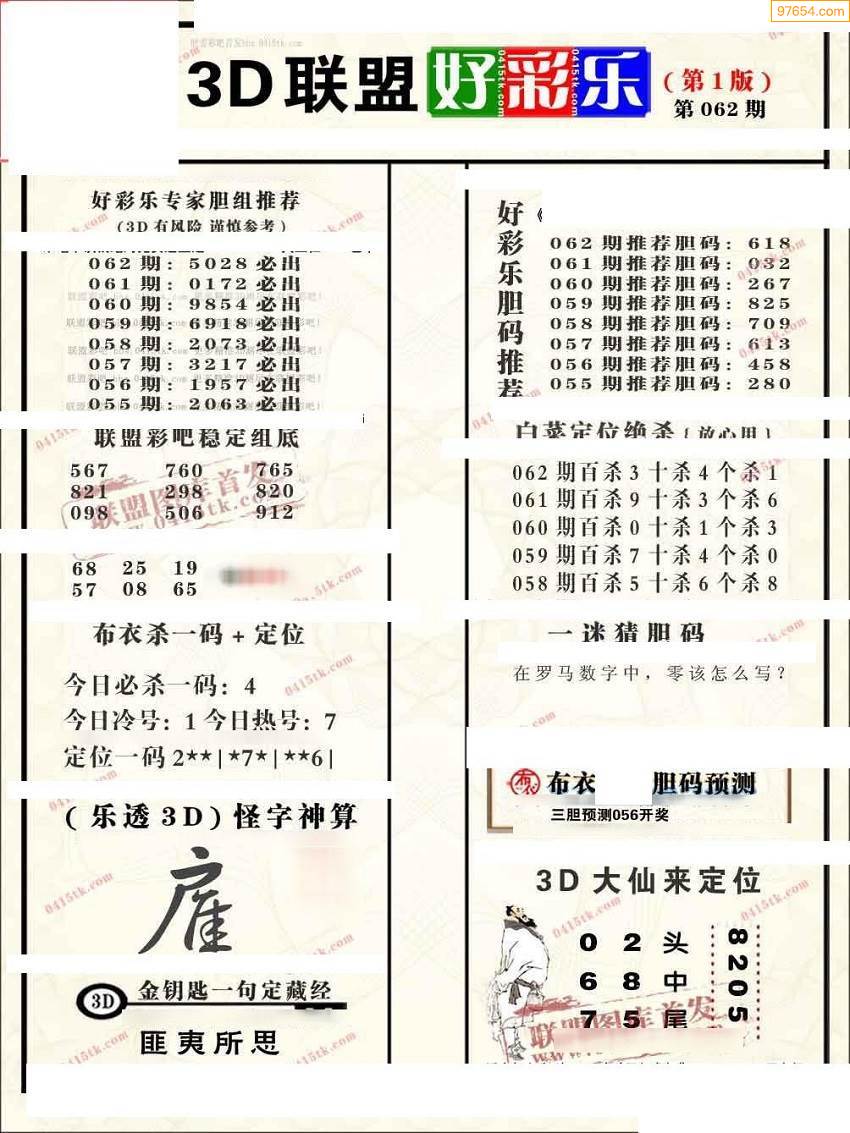 97654.com
3D联盟好彩乐
(第1版)
第062期
好彩乐专家胆组推荐
(3D有风险 谨慎参考)
062期: 5028必出
061期: 0172必出
060期: 9854必出
059期: 6918必出
058期: 2073必出
057期: 3217必出
056期: 1957必出
055期: 2063必出
联盟彩吧稳定组底
567 760 765
821 298 820
098 506 912
68 25 19
57 08 65
布衣杀一码+定位
今日必杀一码: 4
今日冷号: 1 今日热号: 7
定位一码 2**|*7*|**6|
(乐透3D) 怪字神算
雇
3D 金钥匙一句定藏经
匪夷所思
好彩乐胆码推荐
062期推荐胆码: 618
061期推荐胆码: 032
060期推荐胆码: 267
059期推荐胆码: 825
058期推荐胆码: 709
057期推荐胆码: 613
056期推荐胆码: 458
055期推荐胆码: 280
白菜定位绝杀{放心用}
062期百杀3十杀4个杀1
061期百杀9十杀3个杀6
060期百杀0十杀1个杀3
059期百杀7十杀4个杀0
058期百杀5十杀6个杀8
一迷猜胆码
在罗马数字中，零该怎么写?
布衣 布衣 胆码预测
三胆预测056开奖
3D大仙来定位
0 2 头
6 8 中
7 5 尾
8205
联盟图库首发
0415tk.com